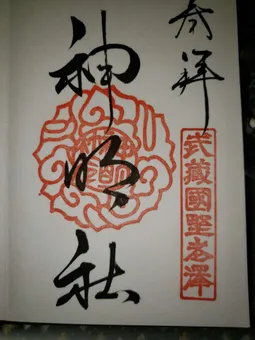 奉拝
武蔵國野老澤
神明社